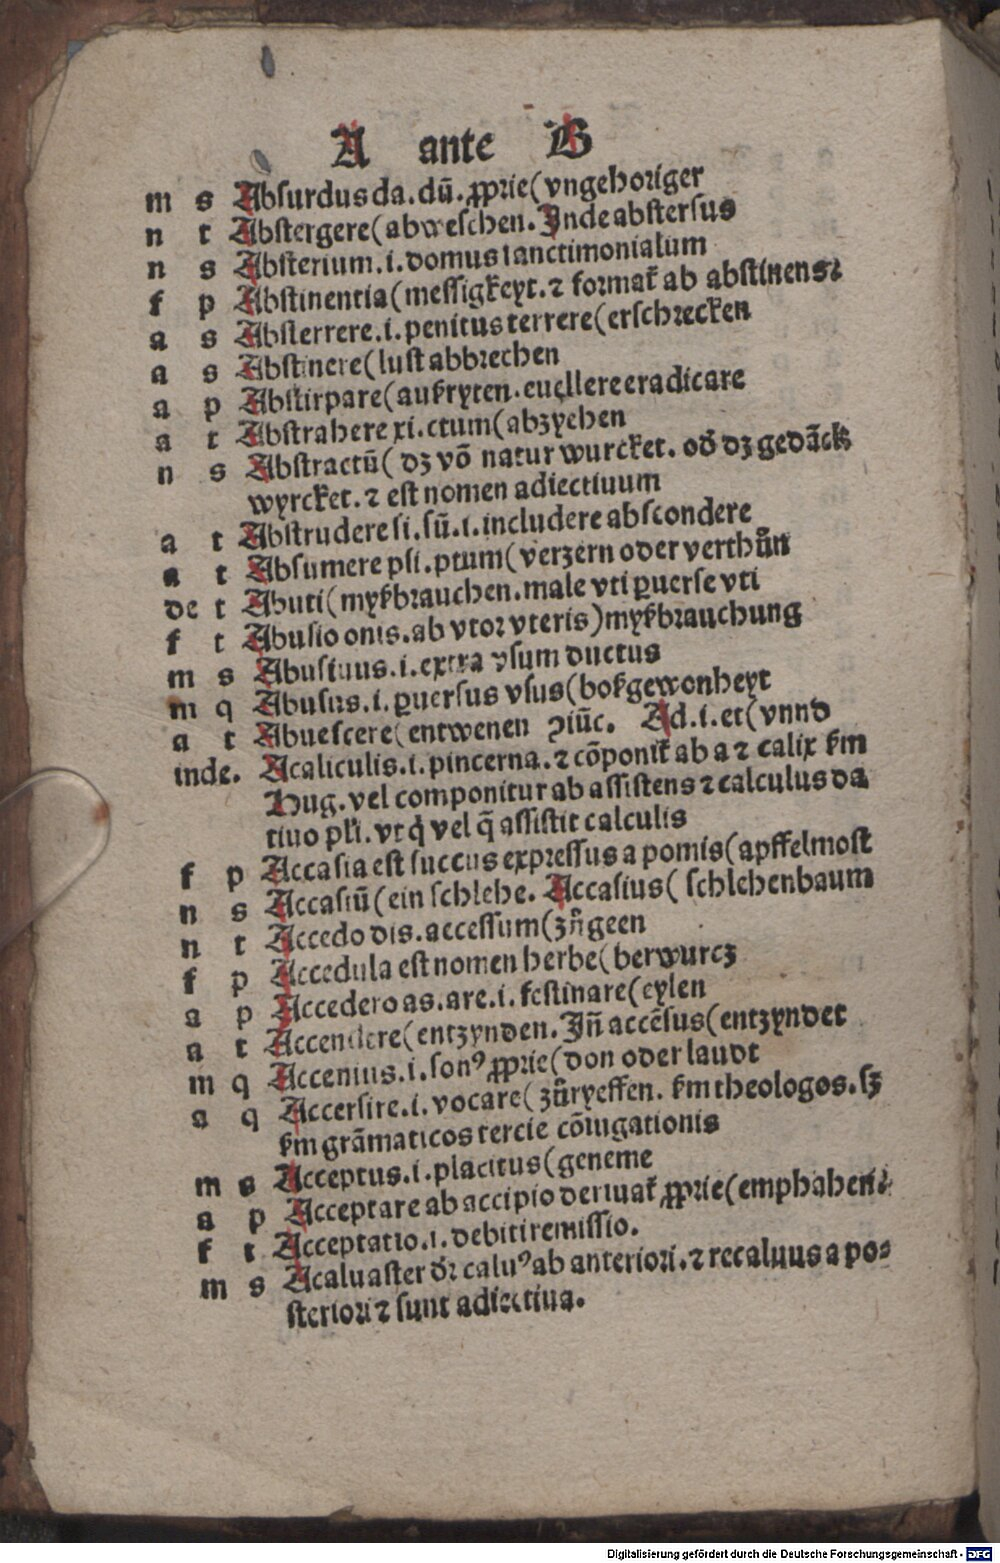 A ante B
m s Absurdus da. dū. ꝓprie( vngehoriger
n t Abstergere( abweschen. Inde abstersus
n s Absterium .i. domus sanctimonialum
f p Abstinentia( messigkeyt. ⁊ format̄ ab abstinens⸗
a s Absterrere .i. penitus terrere( erschrecken
a s Abstinere( lust abbrechen
a p Abstirpare( außryten. euellere eradicare
a t Abstrahere xi. ctum( abzychen
n s Abstractū( dz vō natur wurcket. od̄ dz gedāck
wyrcket. ⁊ est nomen adiectiuum
a t Abstrudere si. sū .i. includere abscondere
a t Absumere psi. ptum( verzern oder verthůn
de t Abuti( myßbrauchen. male vti ꝑuerse vti
f t Abusio onis. ab vtor vteris) myßbrauchung
m s Abusiuus .i. extra vsum ductus
m q Abusus .i. ꝑuersus vsus( boßgewonheyt
a t Abuescere( entwenen ꝯiūc. Ad .i. et( vnnd
inde. Acaliculis .i. pincerna. ⁊ cōponit̄ ab a ⁊ calix ẜm
Hug. vel componitur ab assistens ⁊ calculus da
tiuo pl̄i. vt q̇ vel q̄ assistit calculis
f p Accasia est succus expressus a pomis( apffelmost
n s Accasiū( ein schlehe. Accasius( schlehenbaum
n t Accedo dis. accessum( zůgeen
f p Accedula est nomen herbe( berwurcz
a p Accedero as. are .i. festinare( eylen
a t Accendere( entzynden. Inē accēsus( entzyndet
m q Accentus .i. sonꝰ ꝓprie( don oder laudt
a q Accersire .i. vocare( zůryeffen. ẜm theologos. sꝫ
ẜm grāmaticos tercie cōiugationis
m s Acceptus .i. placitus( geneme
a p Acceptare ab accipio deriuat̄ ꝓprie( emphahen⸗
f t Acceptatio .i. debiti remissio.
m s Acaluaster dr̄ caluꝰ ab anteriori. ⁊ recaluus a po⸗
steriori ⁊ sunt adiectiua.
Digitalisierung gefördert durch die Deutsche Forschungsgemeinschaft - DFG